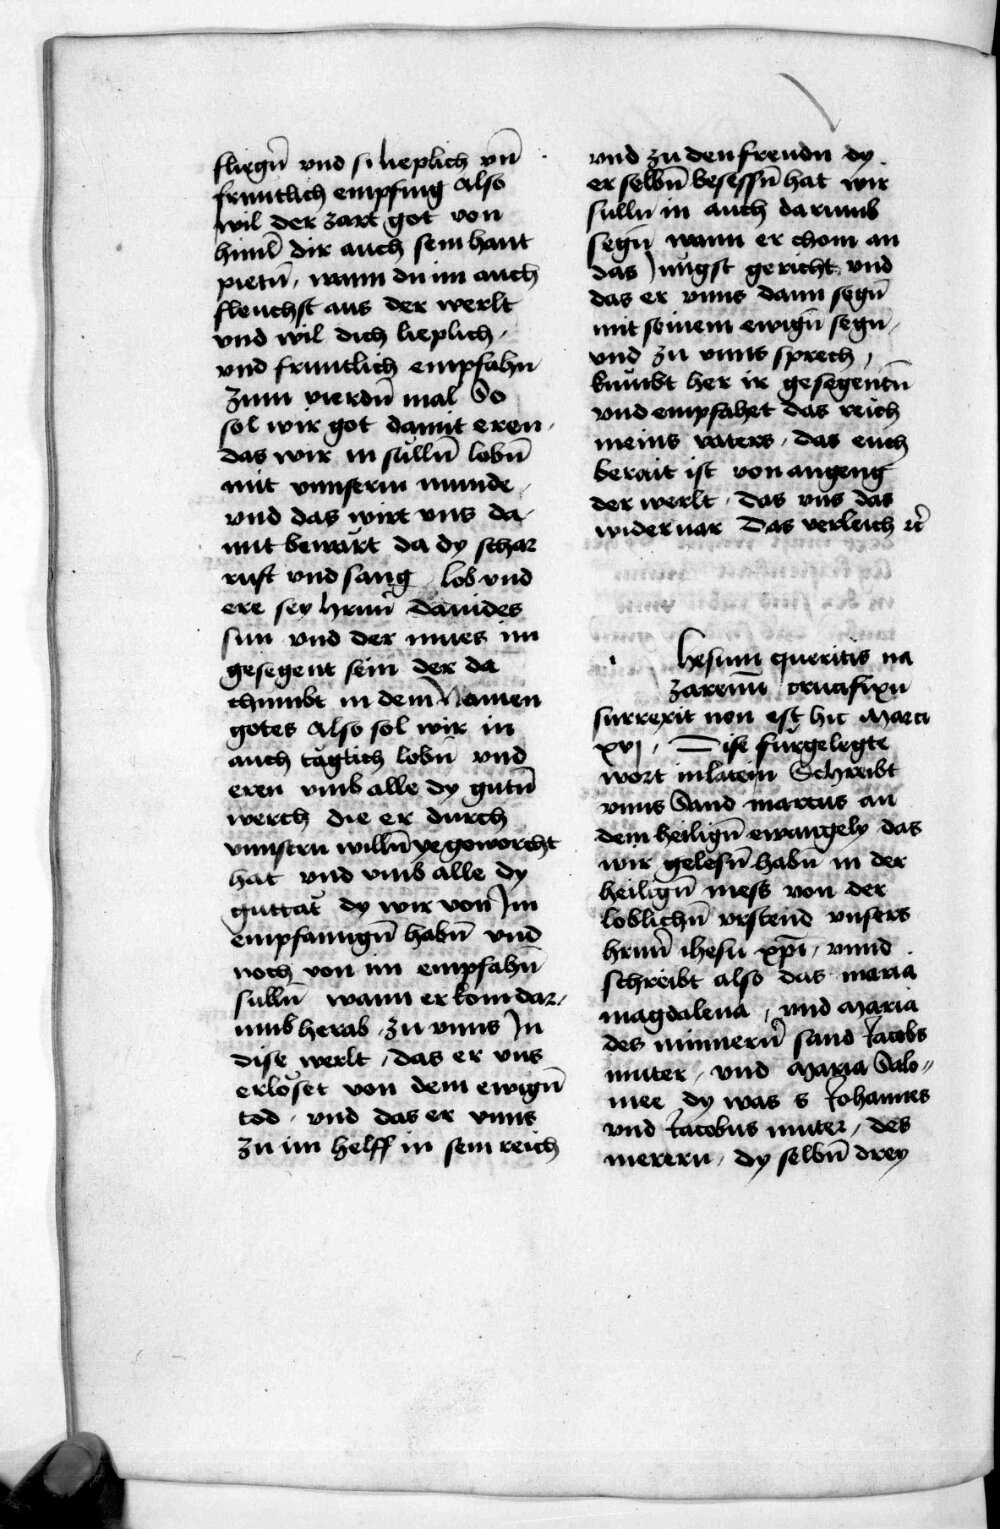 fliegn̄ vnd si lieplich vn̄
fruntlich empfing Also
wil der zart got von
himl̄ dir auch sein hant
pietn̄, wann du im auch
fleuchst aus der werlt
vnd wil dich lieplich,
vnd fruntlich empfahn
Zum vierdn̄ mal So
sol wir got damit eren,
das wir in sulln̄ lobn̄
mit vnnserm munde,
vnd das wirt vns da-
mit bewärt da dy schar
ruft vnd sang lob vnd
ere sey hrnn̄ Dauides
sun vnd der mues im
gesegent sein der da
chumbt in dem Namen
gotes Also sol wir in
auch täglich lobn̄ vnd
eren vmb alle dy gutn̄
werch die er durch
vnnsern willn̄ ye geworcht
hat vnd vmb alle dy
guttat dy wir von Im
empfanngn̄ habn̄ vnd
noch von im empfahn̄
sulln̄ wann er kom dar,
umb herab zu vnns In
dise werlt, das er vns
erlöset von dem ewign̄
tod, vnd das er vnns
zu im helff in sein reich
vnd zu den freudn dy
er selbn̄ besessn̄ hat wir
sulln in auch darumb
segn̄ wann er chom an
das Jungst gericht, vnd
das er vnns dann segn̄
mit seinem ewign̄ segn,
vnd zu vnns sprech,
kumbt her ir gesegentn̄
vnd empfahet das reich
meins vaters, das euch
berait ist von angeng
der werlt, das vns das
widervar Das verleich ꝛc̄
hesum queritis na
zarenū crucifixū
surrexit non est hic Marci
xvj, Dise fürgelegte
wort in latein Schreibt
vnns Sand marcus an
dem heilign̄ ewangely das
wir gelesn̄ habn̄ in der
heilign̄ mess von der
loblichn̄ vrstend vnsers
hrnn̄ ihesu xp̄i, vnnd
schreibt also das maria
magdalena, vnd Maria
des minnern̄ sand Jacobs
muter, vnd Maria Salo-
mee dy was s Johannes
vnd Jacobus muter, des
merern, dy selbn̄ drey